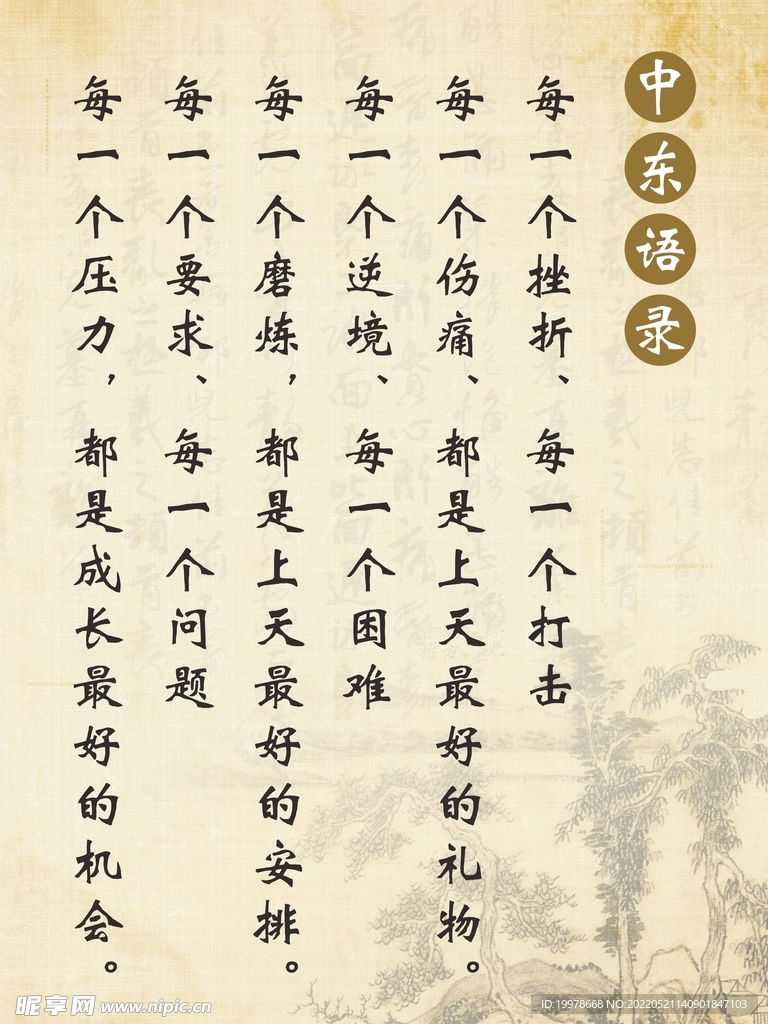 中东语录
每一个挫折、每一个打击
每一个伤痛、都是上天最好的礼物。
每一个逆境、每一个困难
每一个磨炼，都是上天最好的安排。
每一个要求、每一个问题
每一个压力，都是成长最好的机会。
昵享网 www.nipic.cn
ID:19978668 NO:20220521140901847103